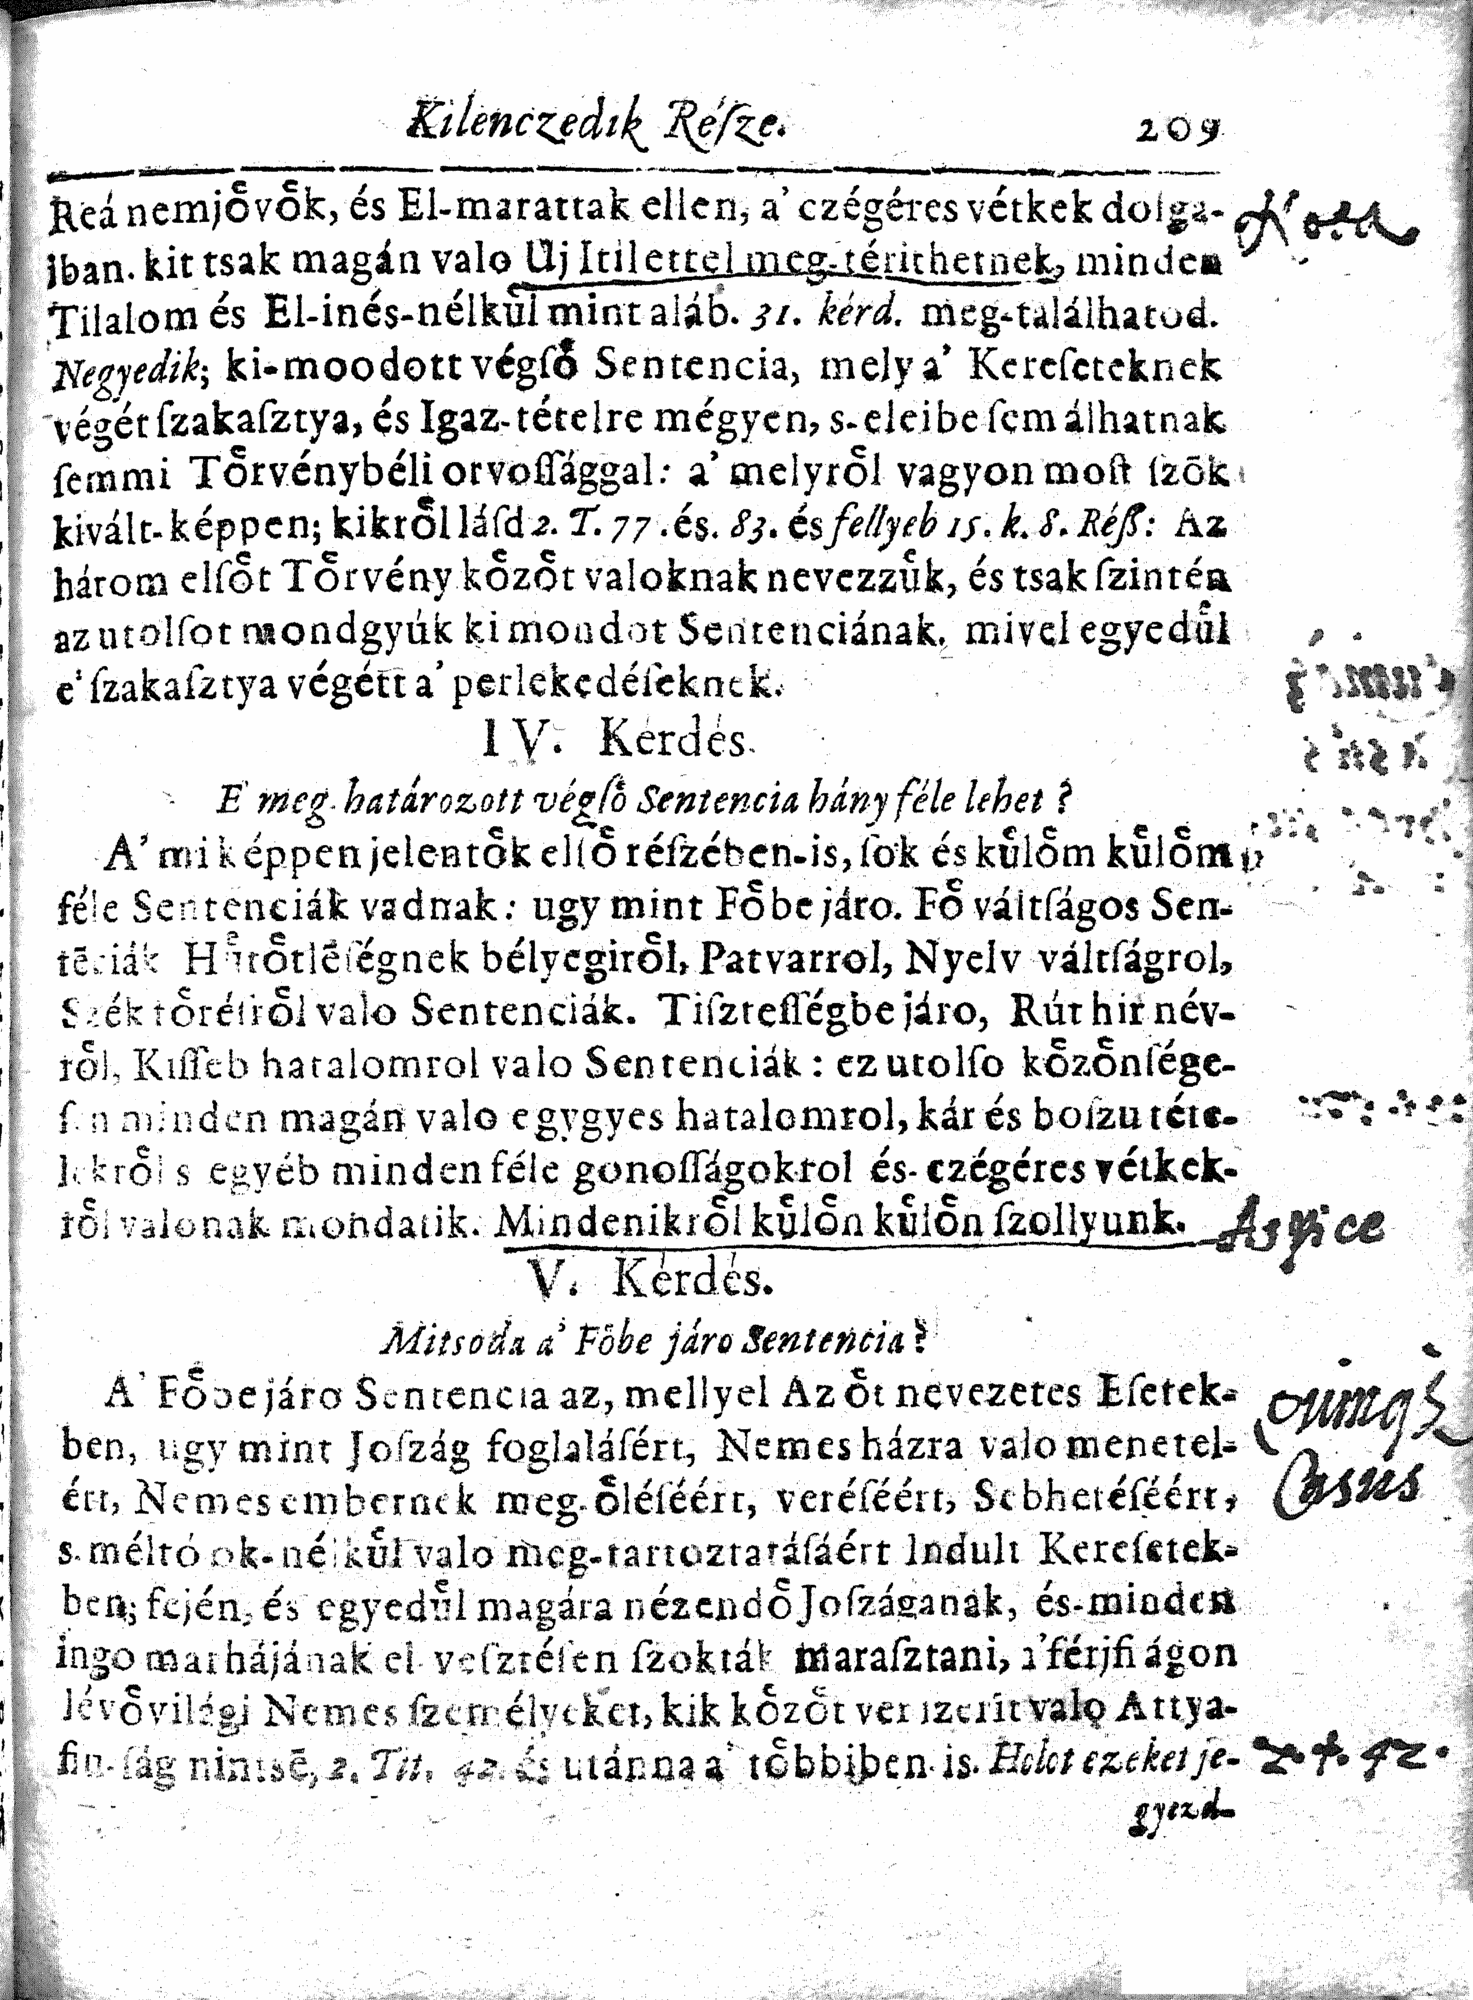 Kilenczedik Réſze. 209
Reá nemjo̊vo̊k, és El-marattak ellen, a' czégéres vétkek dolga-
iban. kit tsak magán valo Uj Itilettel meg-térithetnek, minden
Tilalom és El-inés-nélku̇l mint aláb. 31. kérd. meg-találhatod.
Negyedik; ki-moodott végſo̊ Sentencia, mely a' Kereſeteknek
végét ſzakaſztya, és Igaz-tételre mégyen, s-eleibe ſem álhatnak
ſemmi To̊rvénybéli orvoſſággal: a' melyro̊l vagyon moſt ſzōk
kivált-képpen; kikro̊l láſd 2. T. 77. és. 83. és fellyeb 15. k. 8. Réß: Az
három elſo̊t To̊rvény ko̊zo̊t valoknak nevezzůk, és tsak ſzintén
az utolſot mondgyúk ki mondot Sentenciának. mivel egyedůl
e' ſzakaſztya végétt a' perlekedéſeknek.
IV. Kérdés.
E' meg-határozott végſo̊ Sentencia hány féle lehet?
A' miképpen jelento̊k elſo̊ réſzében-is, ſok és kůlo̊m kůlo̊m
féle Sentenciák vadnak: ugy mint Fo̊be járo. Fo̊ váltſágos Sen-
tēciák Hůto̊tlēſégnek bélyegiro̊l, Patvarrol, Nyelv váltſágrol,
Szék to̊réſro̊l valo Sentenciák. Tiſzteſſégbe járo, Rút hir név-
ro̊l, Kiſſeb hatalomrol valo Sentenciák: ez utolſo ko̊zo̊nſége-
ſen minden magán valo egygyes hatalomrol, kár és boſzu téte-
lekro̊l s egyéb minden féle gonoſſágokrol és-czégéres vétkek-
ro̊l valonak mondatik. Mindenikro̊l kůlo̊n kůlo̊n ſzollyunk.
Aspice
V. Kérdés.
Mitsoda a' Fo̊be járo Sentencia?
A' Fo̊be járo Sentencia az, mellyel Az o̊t nevezetes Eſetek-
ben, ugy mint Joſzág foglaláſért, Nemes házra valo menetel-
ért, Nemes embernek meg-o̊léſéért, veréſéért, Sebhetéſéért,
s. méltó ok-nélkůl valo meg-tartoztatáſáért Indult Kereſetek-
ben; fején, és egyedůl magára nézendo̊ Joſzáganak, és-minden
ingo marhájának el-veſztéſen ſzokták maraſztani, a' férjfi ágon
lévo̊ világi Nemes ſzemélyeket, kik ko̊zo̊t ver ſzerit valo Attya-
fiu-ſág nintsē, 2. Tit. 42. és utánna a' to̊bbiben-is. Helet ezeket je-
gyezd-
Casus
2. t. 42.